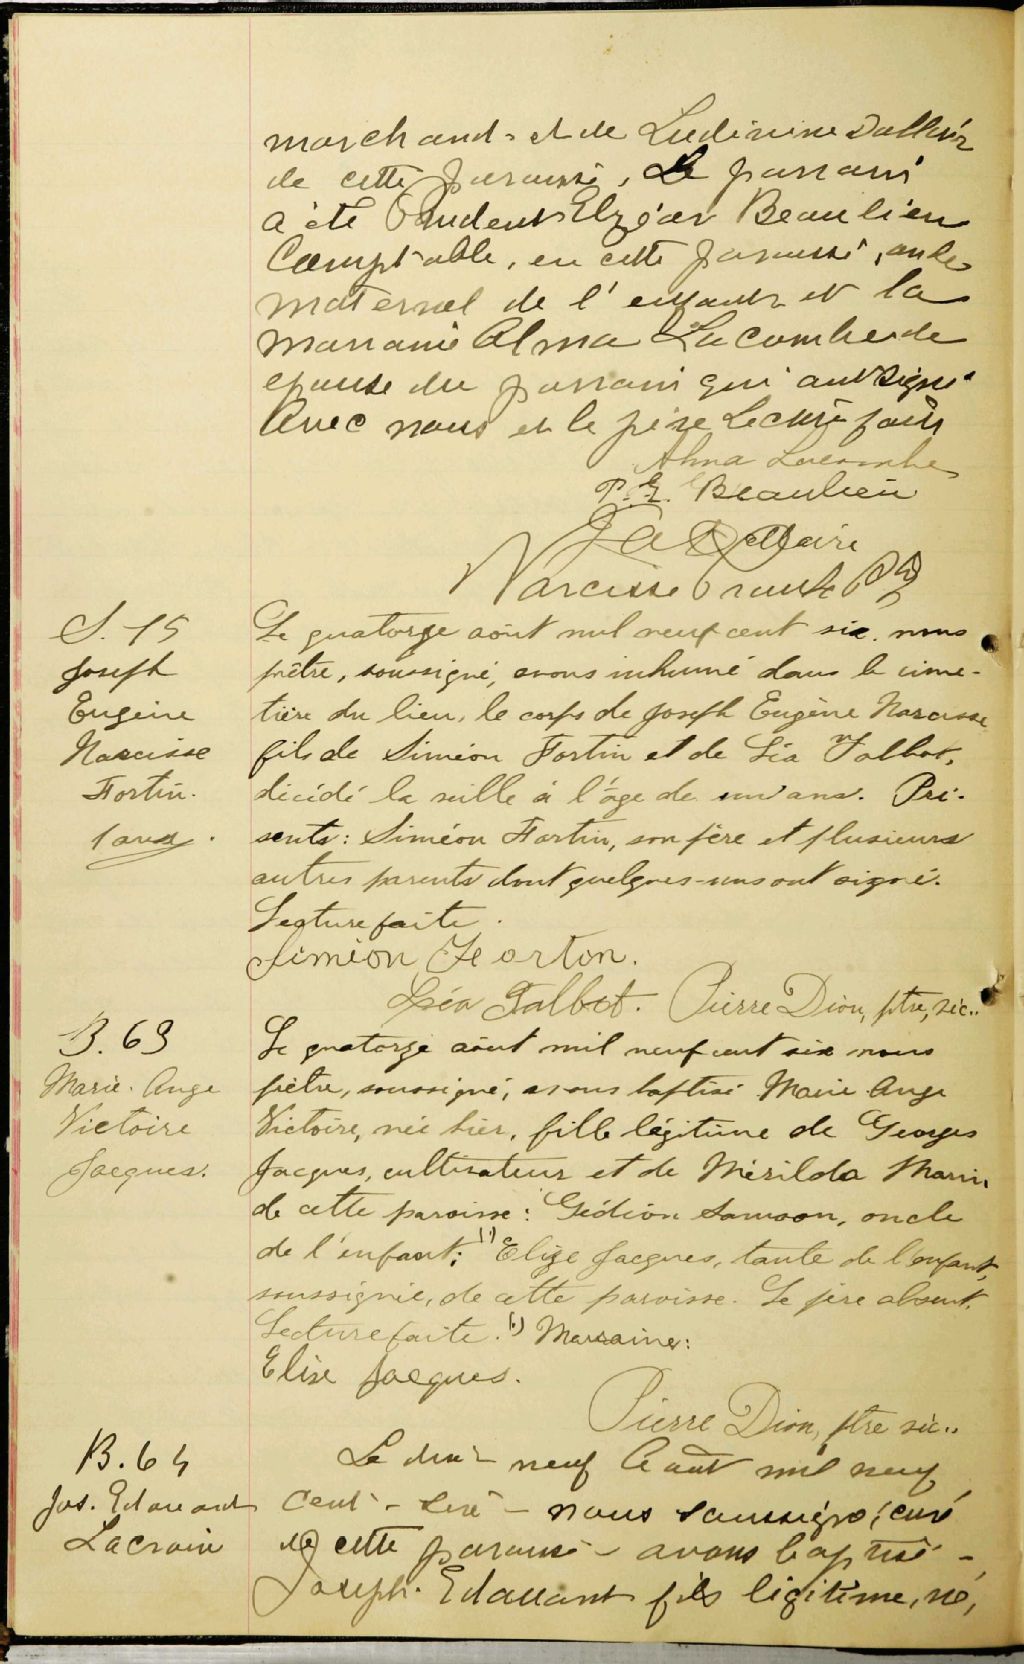 marchand et de Ludivine Dallaire
de cette paroisse, Le parrain
a été Prudent Elzéar Beaulieu
Comptable, en cette paroisse, oncle
maternel de l'enfant et la
marraine Alma Lacombe de
epouse du parrain qui ont signé
avec nous et le père Lecture faite
Alma Lacombe
P. E. Beaulieu
Dallaire
Narcisse Proulx Ptre
S. 15
Joseph
Eugène
Narcisse
Fortin.
1 ans.
Le quatorze août mil neuf cent six, nous
prêtre, soussigné, avons inhumé dans le cime-
tière du lieu, le corps de Joseph Eugène Narcisse
fils de Siméon Fortin et de Léa Talbot,
décédé la veille à l'âge de un ans. Pré-
sents: Siméon Fortin, son père et plusieurs
autres parents dont quelques-uns ont signé.
Lecture faite.
Siméon Forton.
Léa Talbot. Pierre Dion, ptre, vic..
B. 63
Marie-Ange
Victoire
Jacques.
Le quatorze août mil neuf cent six nous
prêtre, soussigné, avons baptisé Marie-Ange
Victoire, née hier, fille légitime de Georges
Jacques, cultivateur et de Mérilda Marin
de cette paroisse: Gédéon Samson, oncle
de l'enfant; (1) Elize Jacques, tante de l'enfant,
soussignée, de cette paroisse. Le père absent.
Lecture faite. (1) Marraine:
Elise Jacques.
Pierre Dion, ptre vic..
B. 64
Jos. Edouard
Lacroix
Le dix neuf Août mil neuf
cent - six - nous soussigné, curé
de cette paroisse - avons baptisé -
Joseph-Edouard fils légitime, né,